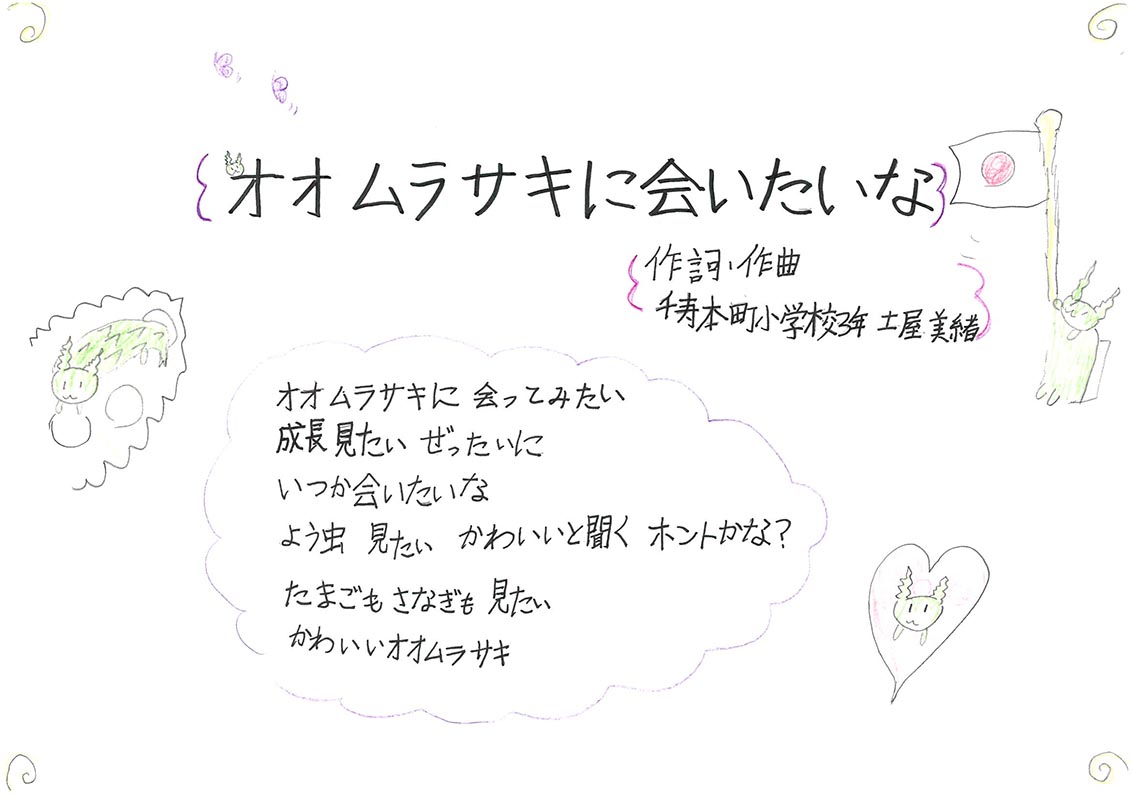 オオムラサキに会いたいな
作詞・作曲
千寿本町小学校3年 土屋美緒
オオムラサキに 会ってみたい
成長見たい ぜったいに
いつか会いたいな
よう虫 見たい かわいいと聞く ホントかな?
たまごもさなぎも 見たい
かわいいオオムラサキ